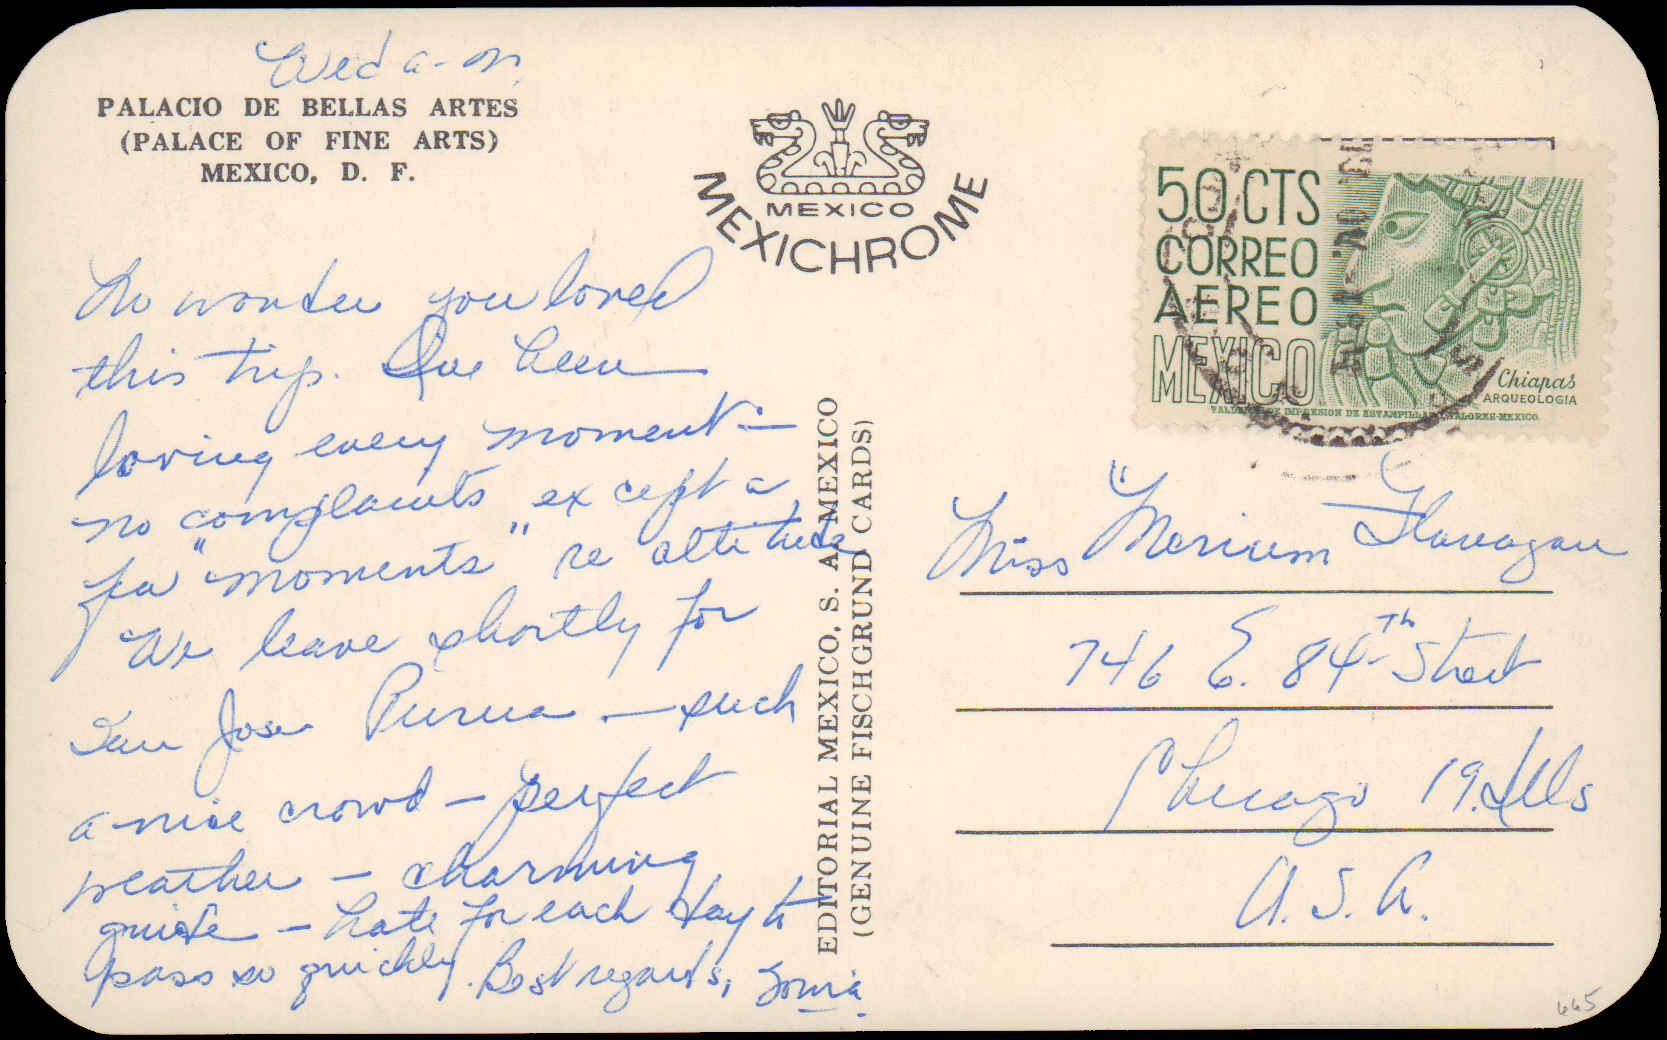 Wed a-m
PALACIO DE BELLAS ARTES
(PALACE OF FINE ARTS)
MEXICO, D. F.
No wonder you loved
this trip. I've been
loving every moment —
no complaints except a
few "moments" re altitude
We leave shortly for
San Jose Purua — such
a nice crowd — perfect
weather — charming
guide — hate for each day to
pass so quickly. Best regards,
MEXICO
MEXICHROME
EDITORIAL MEXICO, S. A. MEXICO
(GENUINE FISCHGRUND CARDS)
50 CTS
CORREO
AEREO
MEXICO
Chiapas
ARQUEOLOGIA
Miss Merium Flanagan
746 E. 84th Street
Chicago 19, Ills
U.S.A.
665